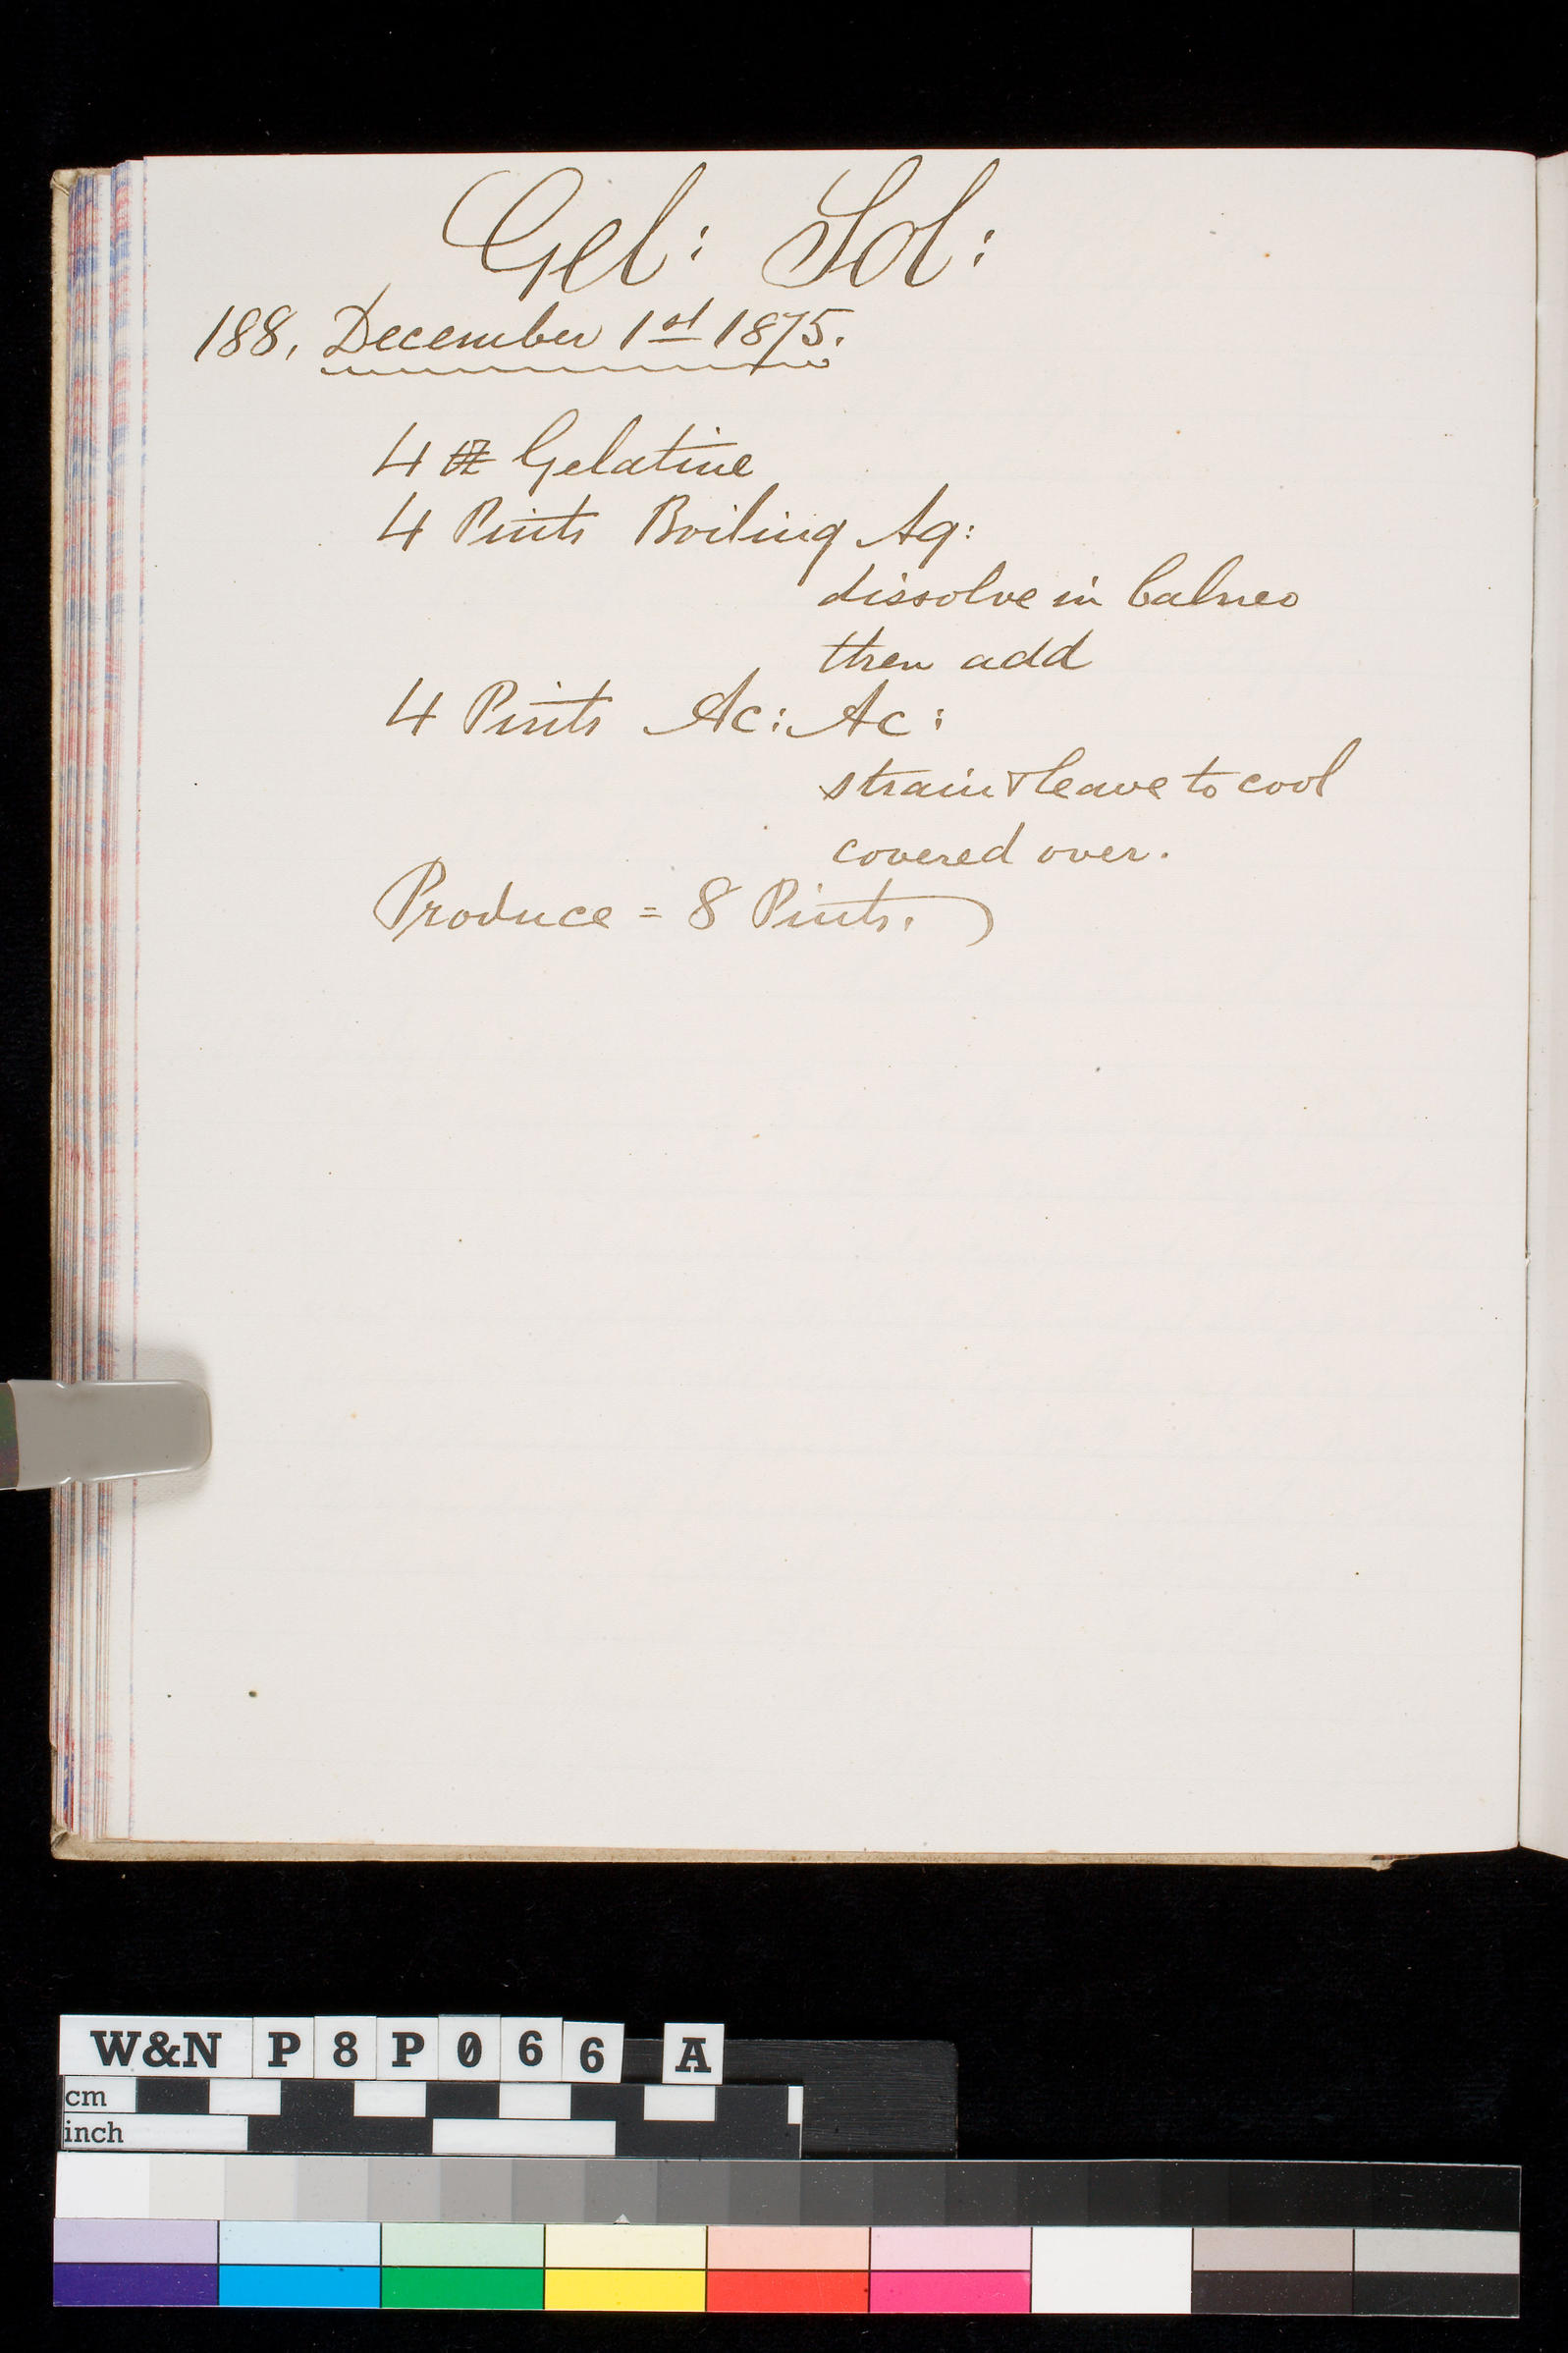 Gel: Sol:
188, December 1st 1875.
4 Gelatine
4 Pints Boiling Aq:
dissolve in balneo
then add
4 Pints Ac: Ac:
strain & leave to cool
covered over.
Produce = 8 Pints.
W&N P8P066 A
cm
inch